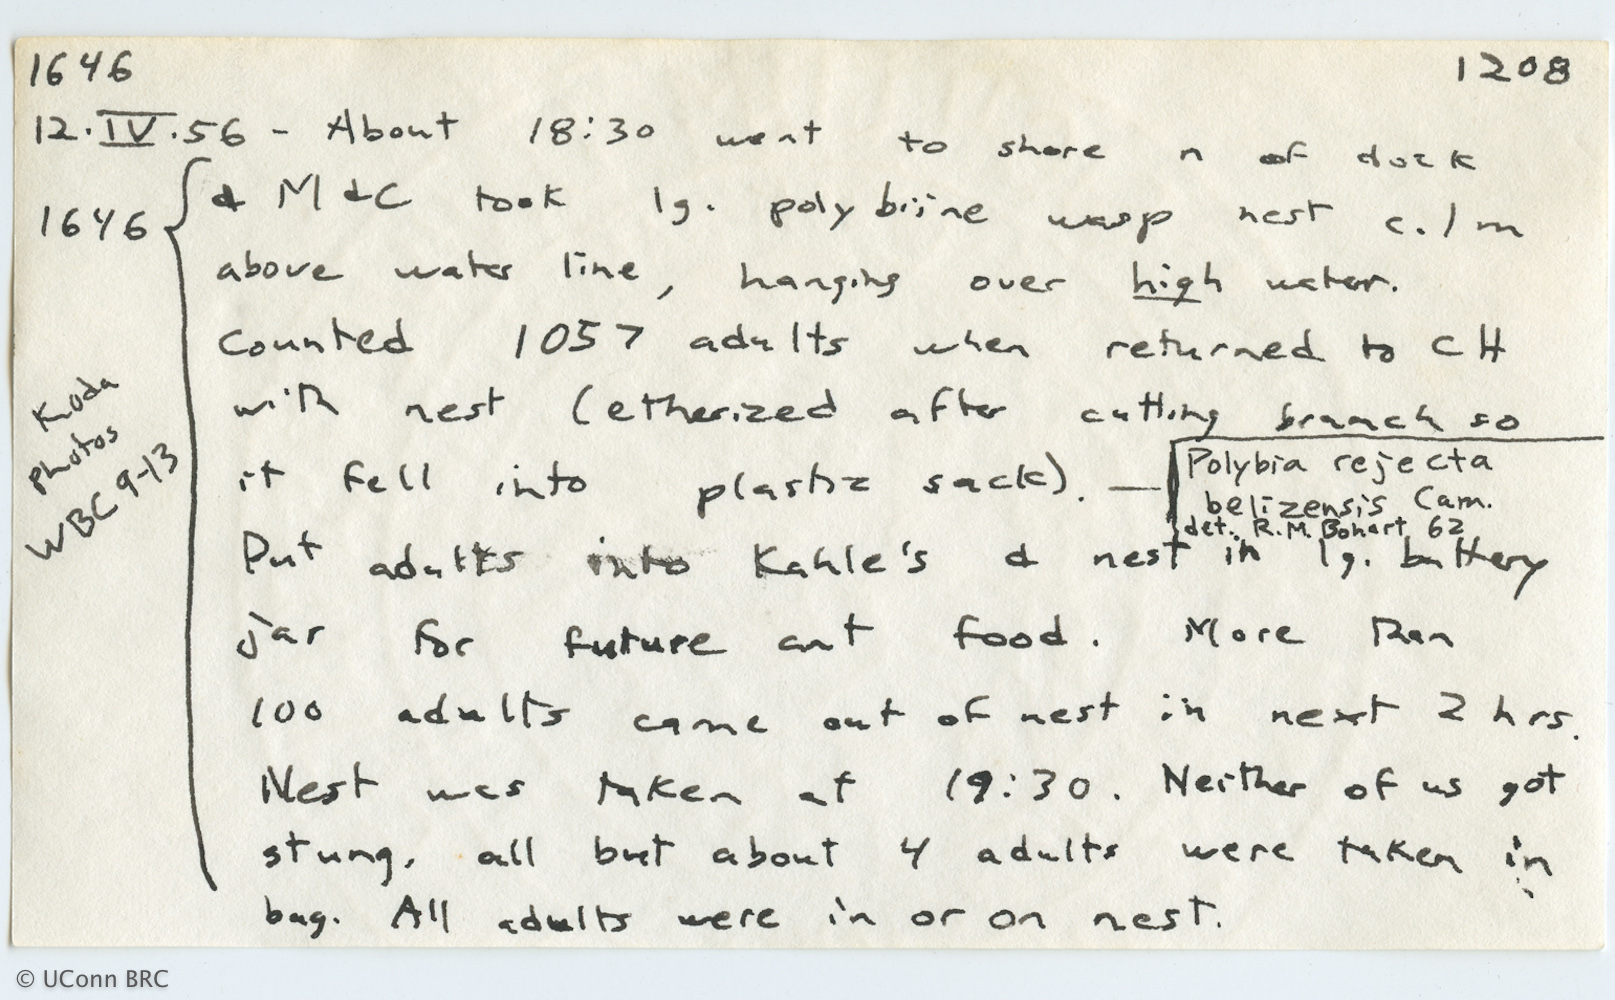 1646
1208
12.IV.56 - About 18:30 went to shore n of dock
1646
& M & C took lg. polybiine wasp nest c. 1 m
above water line, hanging over high water.
Counted 1057 adults when returned to CH
with nest (etherized after cutting branch so
it fell into plastic sack). —
Polybia rejecta
belizensis Cam.
det. R.M. Bohart 62
Koda
photos
WBC 9-13
Put adults into Kahle's & nest in lg. battery
jar for future ant food. More than
100 adults came out of nest in next 2 hrs.
Nest was taken at 19:30. Neither of us got
stung, all but about 4 adults were taken in
bag. All adults were in or on nest.
© UConn BRC